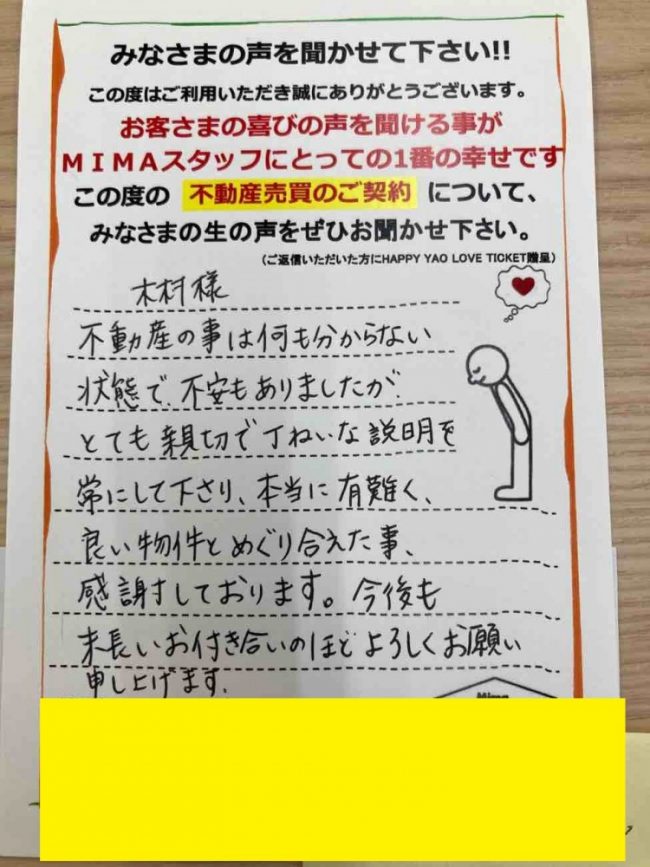 みなさまの声を聞かせて下さい!!
この度はご利用いただき誠にありがとうございます。
お客さまの喜びの声を聞ける事が
MIMAスタッフにとっての1番の幸せです
この度の 不動産売買のご契約 について、
みなさまの生の声をぜひお聞かせ下さい。
(ご返信いただいた方にHAPPY YAO LOVE TICKET贈呈)
木村様
不動産の事は何も分からない
状態で、不安もありましたが、
とても親切で丁ねいな説明を
常にして下さり、本当に有難く、
良い物件とめぐり合えた事、
感謝しております。今後も
末長いお付き合いのほどよろしくお願い
申し上げます.
Mima